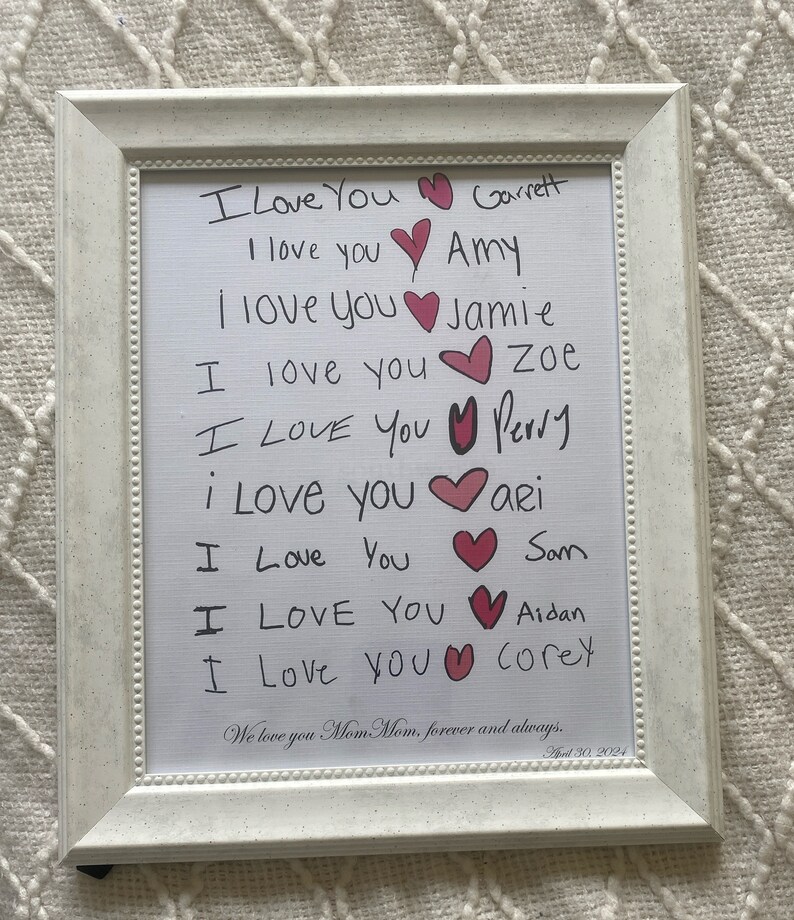 I Love You Garrett
I love you Amy
i love you Jamie
I love you Zoe
I LOVE You Perry
i Love you aRi
I Love You Sam
I LOVE YOU Aidan
I Love YOU Corey
We love you MomMom, forever and always.
April 30, 2024